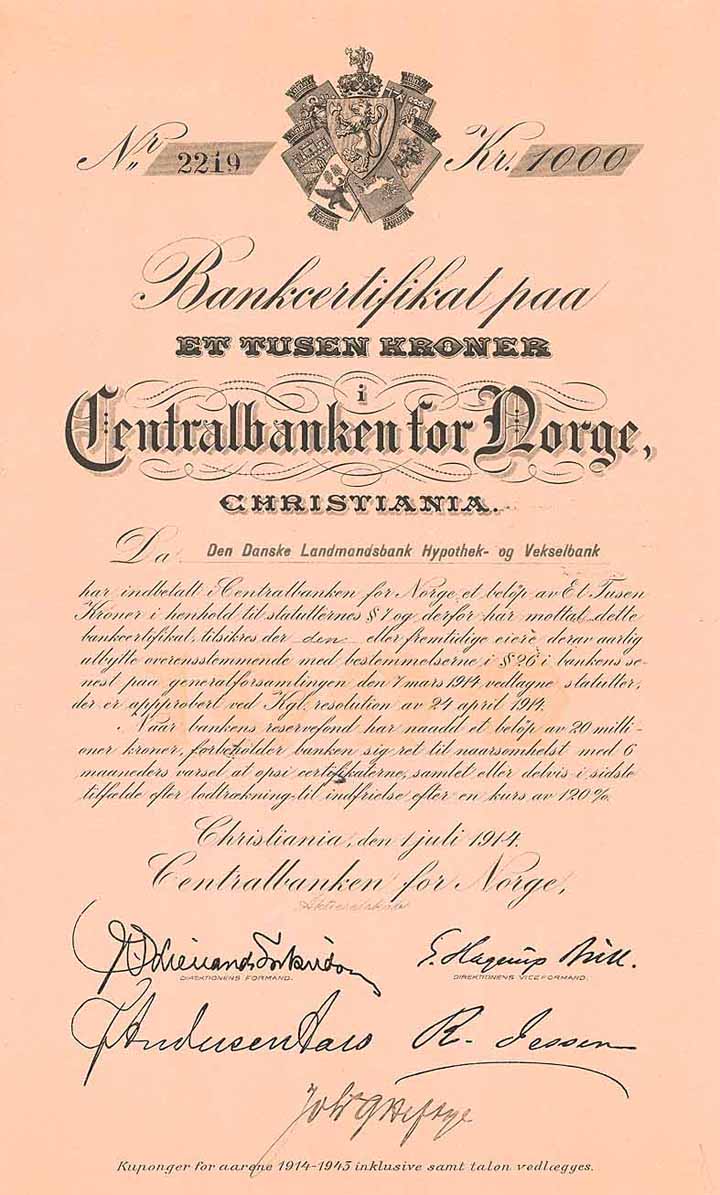 Nr 2219 Kr. 1000
Bankcertifikat paa
ET TUSEN KRONER
i
Centralbanken for Norge,
CHRISTIANIA.
Da Den Danske Landmandsbank Hypothek- og Vekselbank
har indbetalt i Centralbanken for Norge et beløp av Et Tusen
Kroner i henhold til statutternes § 7 og derfor har mottat dette
bankcertifikat, tilsikres der den eller fremtidige eiere derav aarlig
utbytte overensstemmende med bestemmelserne i § 26 i bankens se-
nest paa generalforsamlingen den 7 mars 1914 vedtagne statutter,
der er appprobert ved Kgl. resolution av 24 april 1914.
Naar bankens reservefond har naadd et beløp av 20 milli-
oner kroner, forbeholder banken sig ret til naarsomhelst med 6
maaneders varsel at opsi certifikaterne, samlet eller delvis i sidste
tilfælde efter lodtrækning til indfrielse efter en kurs av 120 %.
Christiania, den 1 juli 1914.
Centralbanken for Norge,
Aktieselskab
DIREKTIONENS FORMAND. DIREKTIONENS VICEFORMAND.
R. Jessen
Kuponger for aarene 1914-1943 inklusive samt talon vedlægges.